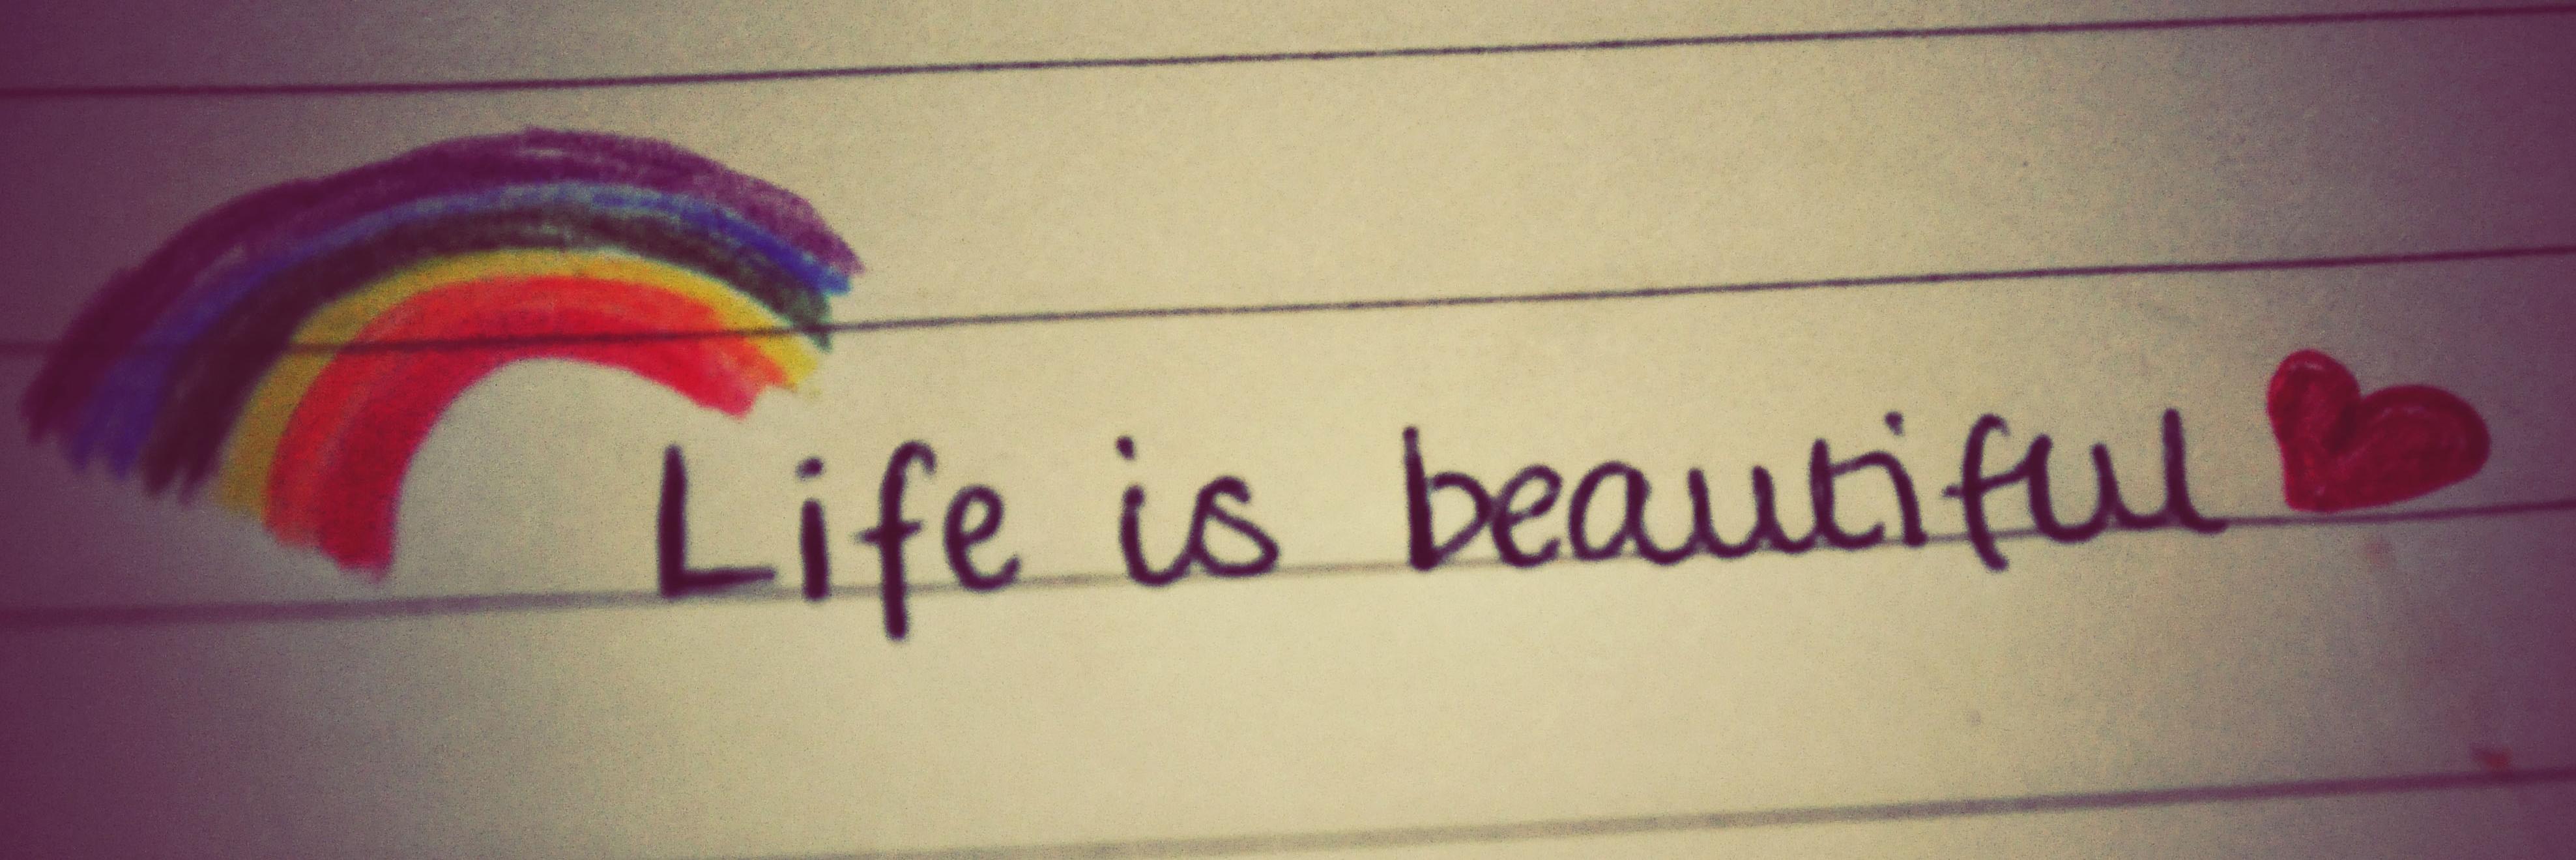 Life is beautiful